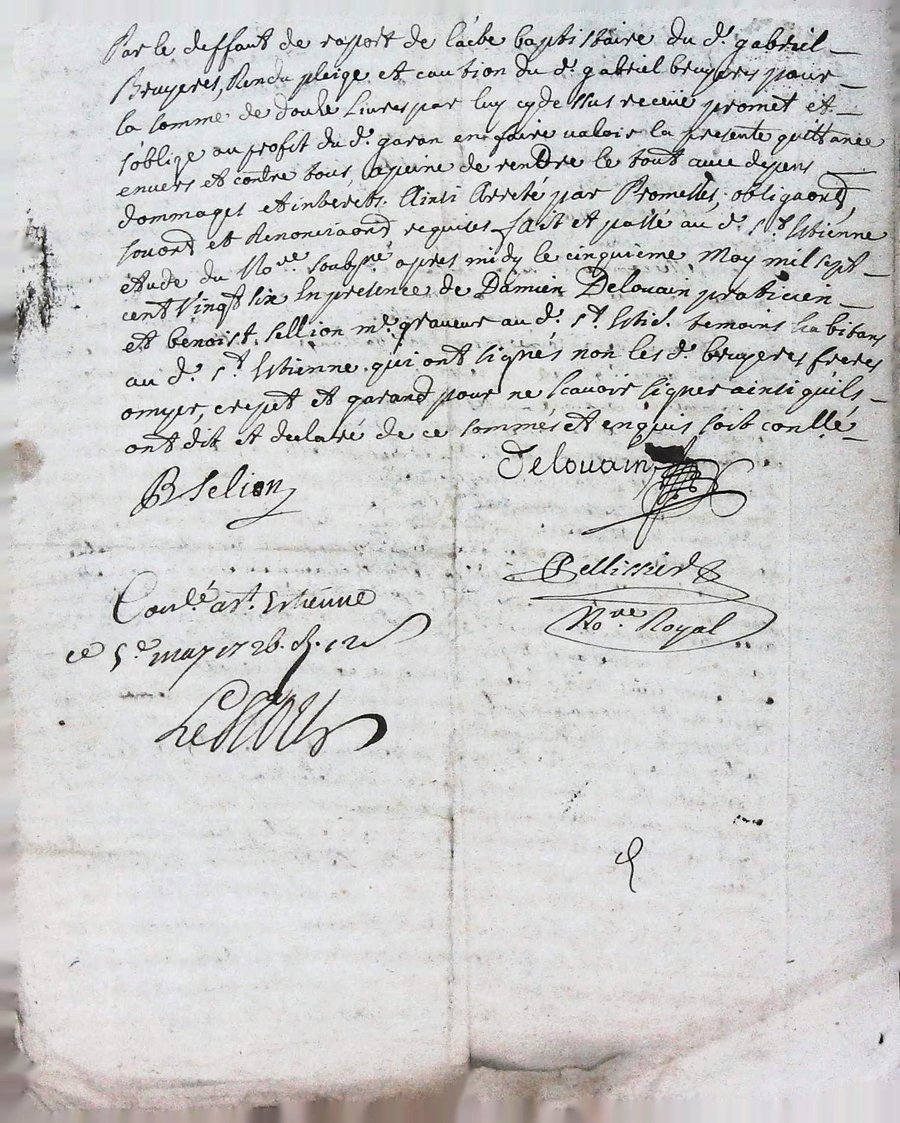 Par le deffaut de raport de lacte baptistaire du d. gabriel
Bruyeres, Rendu pleige et caution du d. gabriel bruyeres pour
la somme de douze Livres par luy cy dessus receüe promet et
s'oblige au profit du d. garan en faire valoir la presente quittance
envers et contre tous, apeine de rendre le tout avec depens
dommages et interets. Ainsi Arreté par Promesses, obligaons,
et Renonciaons requises fait et passé au d. St. Estienne
etude du Nore. soubsné apres midy le cinquieme May mil sept
cent Vingt six En presence de Damien Delouain praticien
et benoist sellion me. graveur au d. St. Esti. temoins habitans
au d. St. Estienne qui ont signés non les d. bruyeres freres
crepet et garand pour ne scavoir signer ainsi quils
ont dit et declaré de ce sommés et enquis soit conllé
B Selion
Delouain
Pellissier
Nore. Royal
Conlé a st. Estienne
ce 5e may 1726. R. 12 s